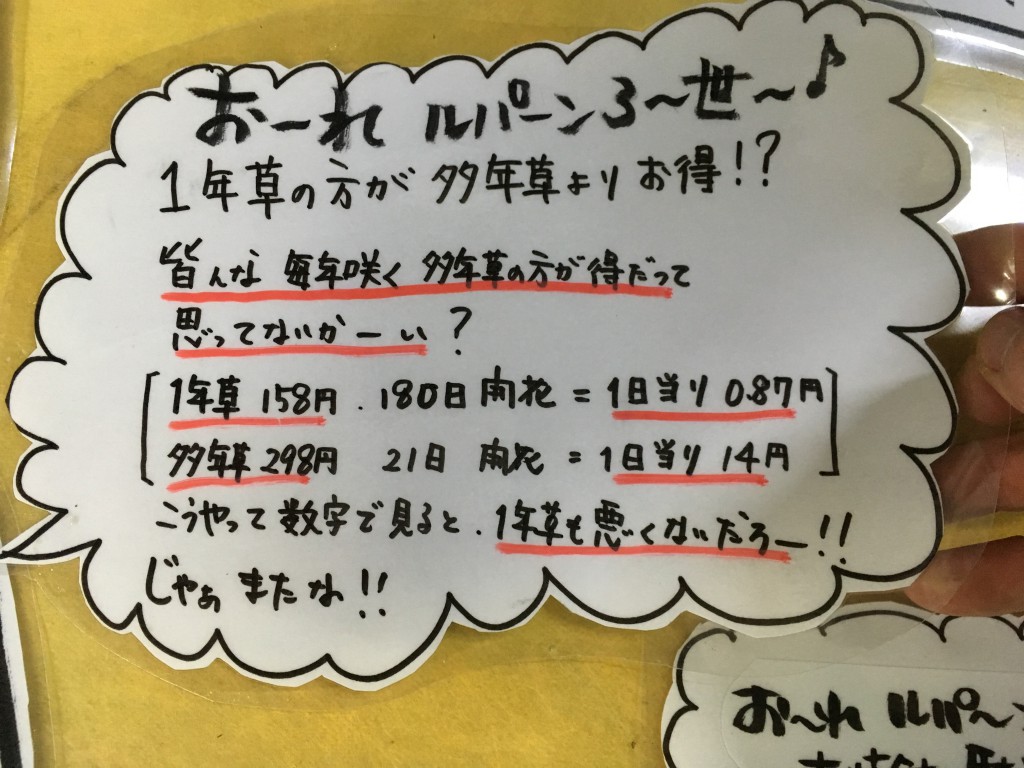 お～れ ルパーン3～世～♪
1年草の方が 多年草より お得！？
皆んな 毎年咲く 多年草の方が得だって
思ってないかーい？
1年草 158円．180日 開花 = 1日当り 0.87円
多年草 298円 21日 開花 = 1日当り 14円
こうやって数字で見ると．1年草も悪くないだろー！！
じゃぁ またな！！
お～れ ルパ～ン